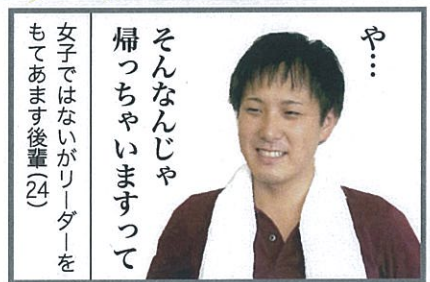 や…
そんなんじゃ
帰っちゃいますって
女子ではないがリーダーを
もてあます後輩(24)